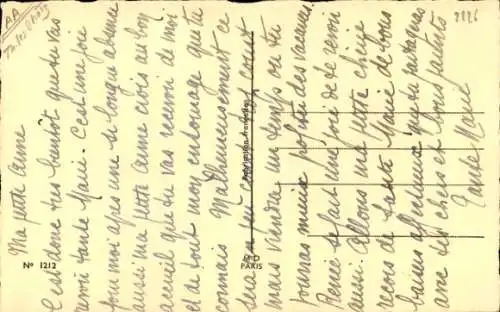 Ma petite Anne
C'est donc très bientôt que tu vas
revoir tante Marie. C'est une joie
pour moi après une si longue absence
aussi ma petite Anne crois au bon
accueil que tu vas recevoir de moi
et de tout mon entourage que tu
connais. Malheureusement ce
sera un court
mais viendra un temps ou tu
pourras mieux profiter des vacances.
René se fait une joie de te revoir
aussi. Allons ma petite chérie
reçois de tante Marie de bons
baisers affectueux que tu partageras
avec tes chers et bons parents
Tante Marie
Nº 1212
M D
PARIS
AA
2226